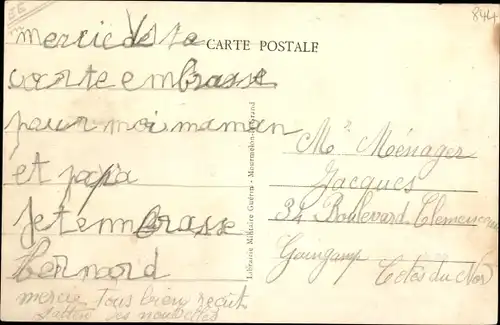 844
CARTE POSTALE
merci de ta
carte embrasse
pour moi maman
et papa
Je t'embrasse
Bernard
merci tous bien reçut
j'attend des nouvelles
Librairie Militaire Guérin - Mourmelon-le-Grand
Mr Ménager
Jacques
34 Boulevard Clemenceau
Guingamp
Côtes du Nord